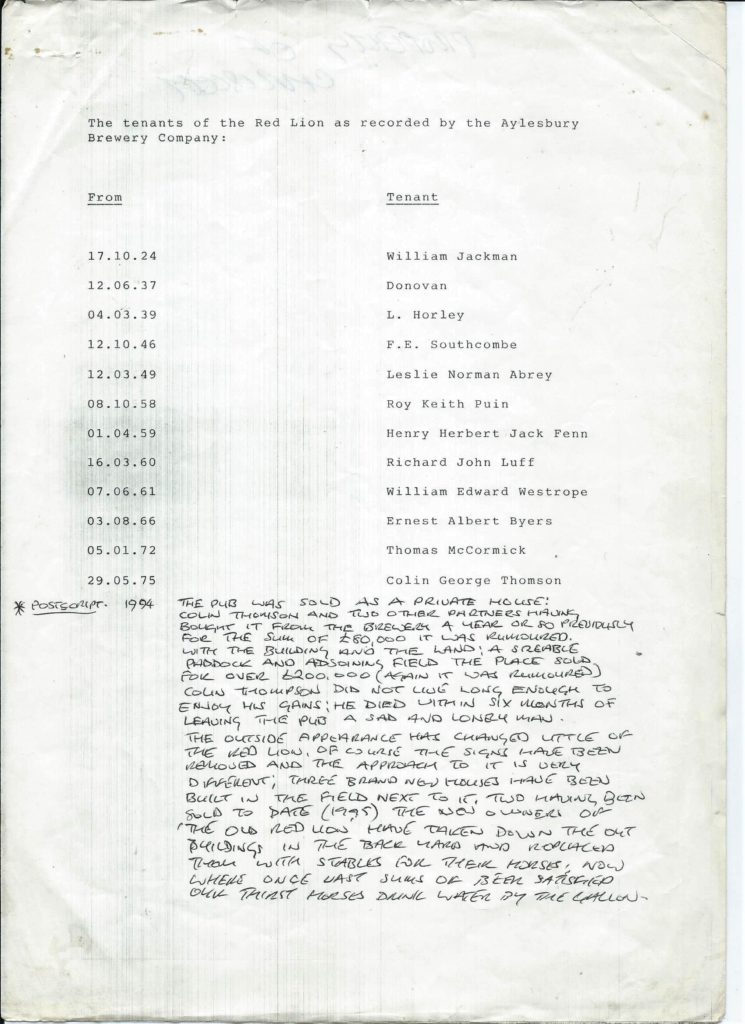 The tenants of the Red Lion as recorded by the Aylesbury
Brewery Company:
From Tenant
17.10.24 William Jackman
12.06.37 Donovan
04.03.39 L. Horley
12.10.46 F.E. Southcombe
12.03.49 Leslie Norman Abrey
08.10.58 Roy Keith Puin
01.04.59 Henry Herbert Jack Fenn
16.03.60 Richard John Luff
07.06.61 William Edward Westrope
03.08.66 Ernest Albert Byers
05.01.72 Thomas McCormick
29.05.75 Colin George Thomson
* POSTSCRIPT. 1994 THE PUB WAS SOLD AS A PRIVATE HOUSE:
COLIN THOMSON AND TWO OTHER PARTNERS HAVING
BOUGHT IT FROM THE BREWERY A YEAR OR SO PREVIOUSLY
FOR THE SUM OF £80,000 IT WAS RUMOURED.
WITH THE BUILDING AND THE LAND; A SIZEABLE
PADDOCK AND ADJOINING FIELD THE PLACE SOLD
FOR OVER £200.000 (AGAIN IT WAS RUMOURED)
COLIN THOMPSON DID NOT LIVE LONG ENOUGH TO
ENJOY HIS GAINS; HE DIED WITHIN SIX MONTHS OF
LEAVING THE PUB A SAD AND LONELY MAN.
THE OUTSIDE APPEARANCE HAS CHANGED LITTLE OF
THE RED LION. OF COURSE THE SIGNS HAVE BEEN
REMOVED AND THE APPROACH TO IT IS VERY
DIFFERENT; THREE BRAND NEW HOUSES HAVE BEEN
BUILT IN THE FIELD NEXT TO IT, TWO HAVING BEEN
SOLD TO DATE (1995) THE NEW OWNERS OF
'THE OLD RED LION HAVE TAKEN DOWN THE OUT
BUILDINGS IN THE BACK YARD AND REPLACED
THEM WITH STABLES FOR THEIR HORSES. NOW
WHERE ONCE VAST SUMS OF BEER SATISFIED
OUR THIRST HORSES DRINK WATER BY THE GALLON.